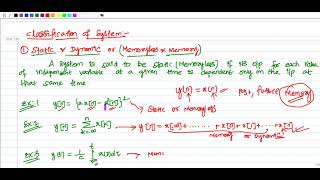 Classification of System:-
① Static & Dynamic or (Memoryless & Memory)
A system is said to be static (memoryless) if its o/p for each value
of independent variable at a given time is dependent only on the i/p at
that same time
y[n] = x[n] past, future Memory
Ex:1 y[n] = {2x[n] - x²[n]}² → Static or Memoryless
Ex:2 y[n] = Σ x[k] k=-∞ n → x[-∞] + ...... + x[n]
Memory or Dynamic
Ex:3 y(t) = 1/C ∫ x(τ)dτ →